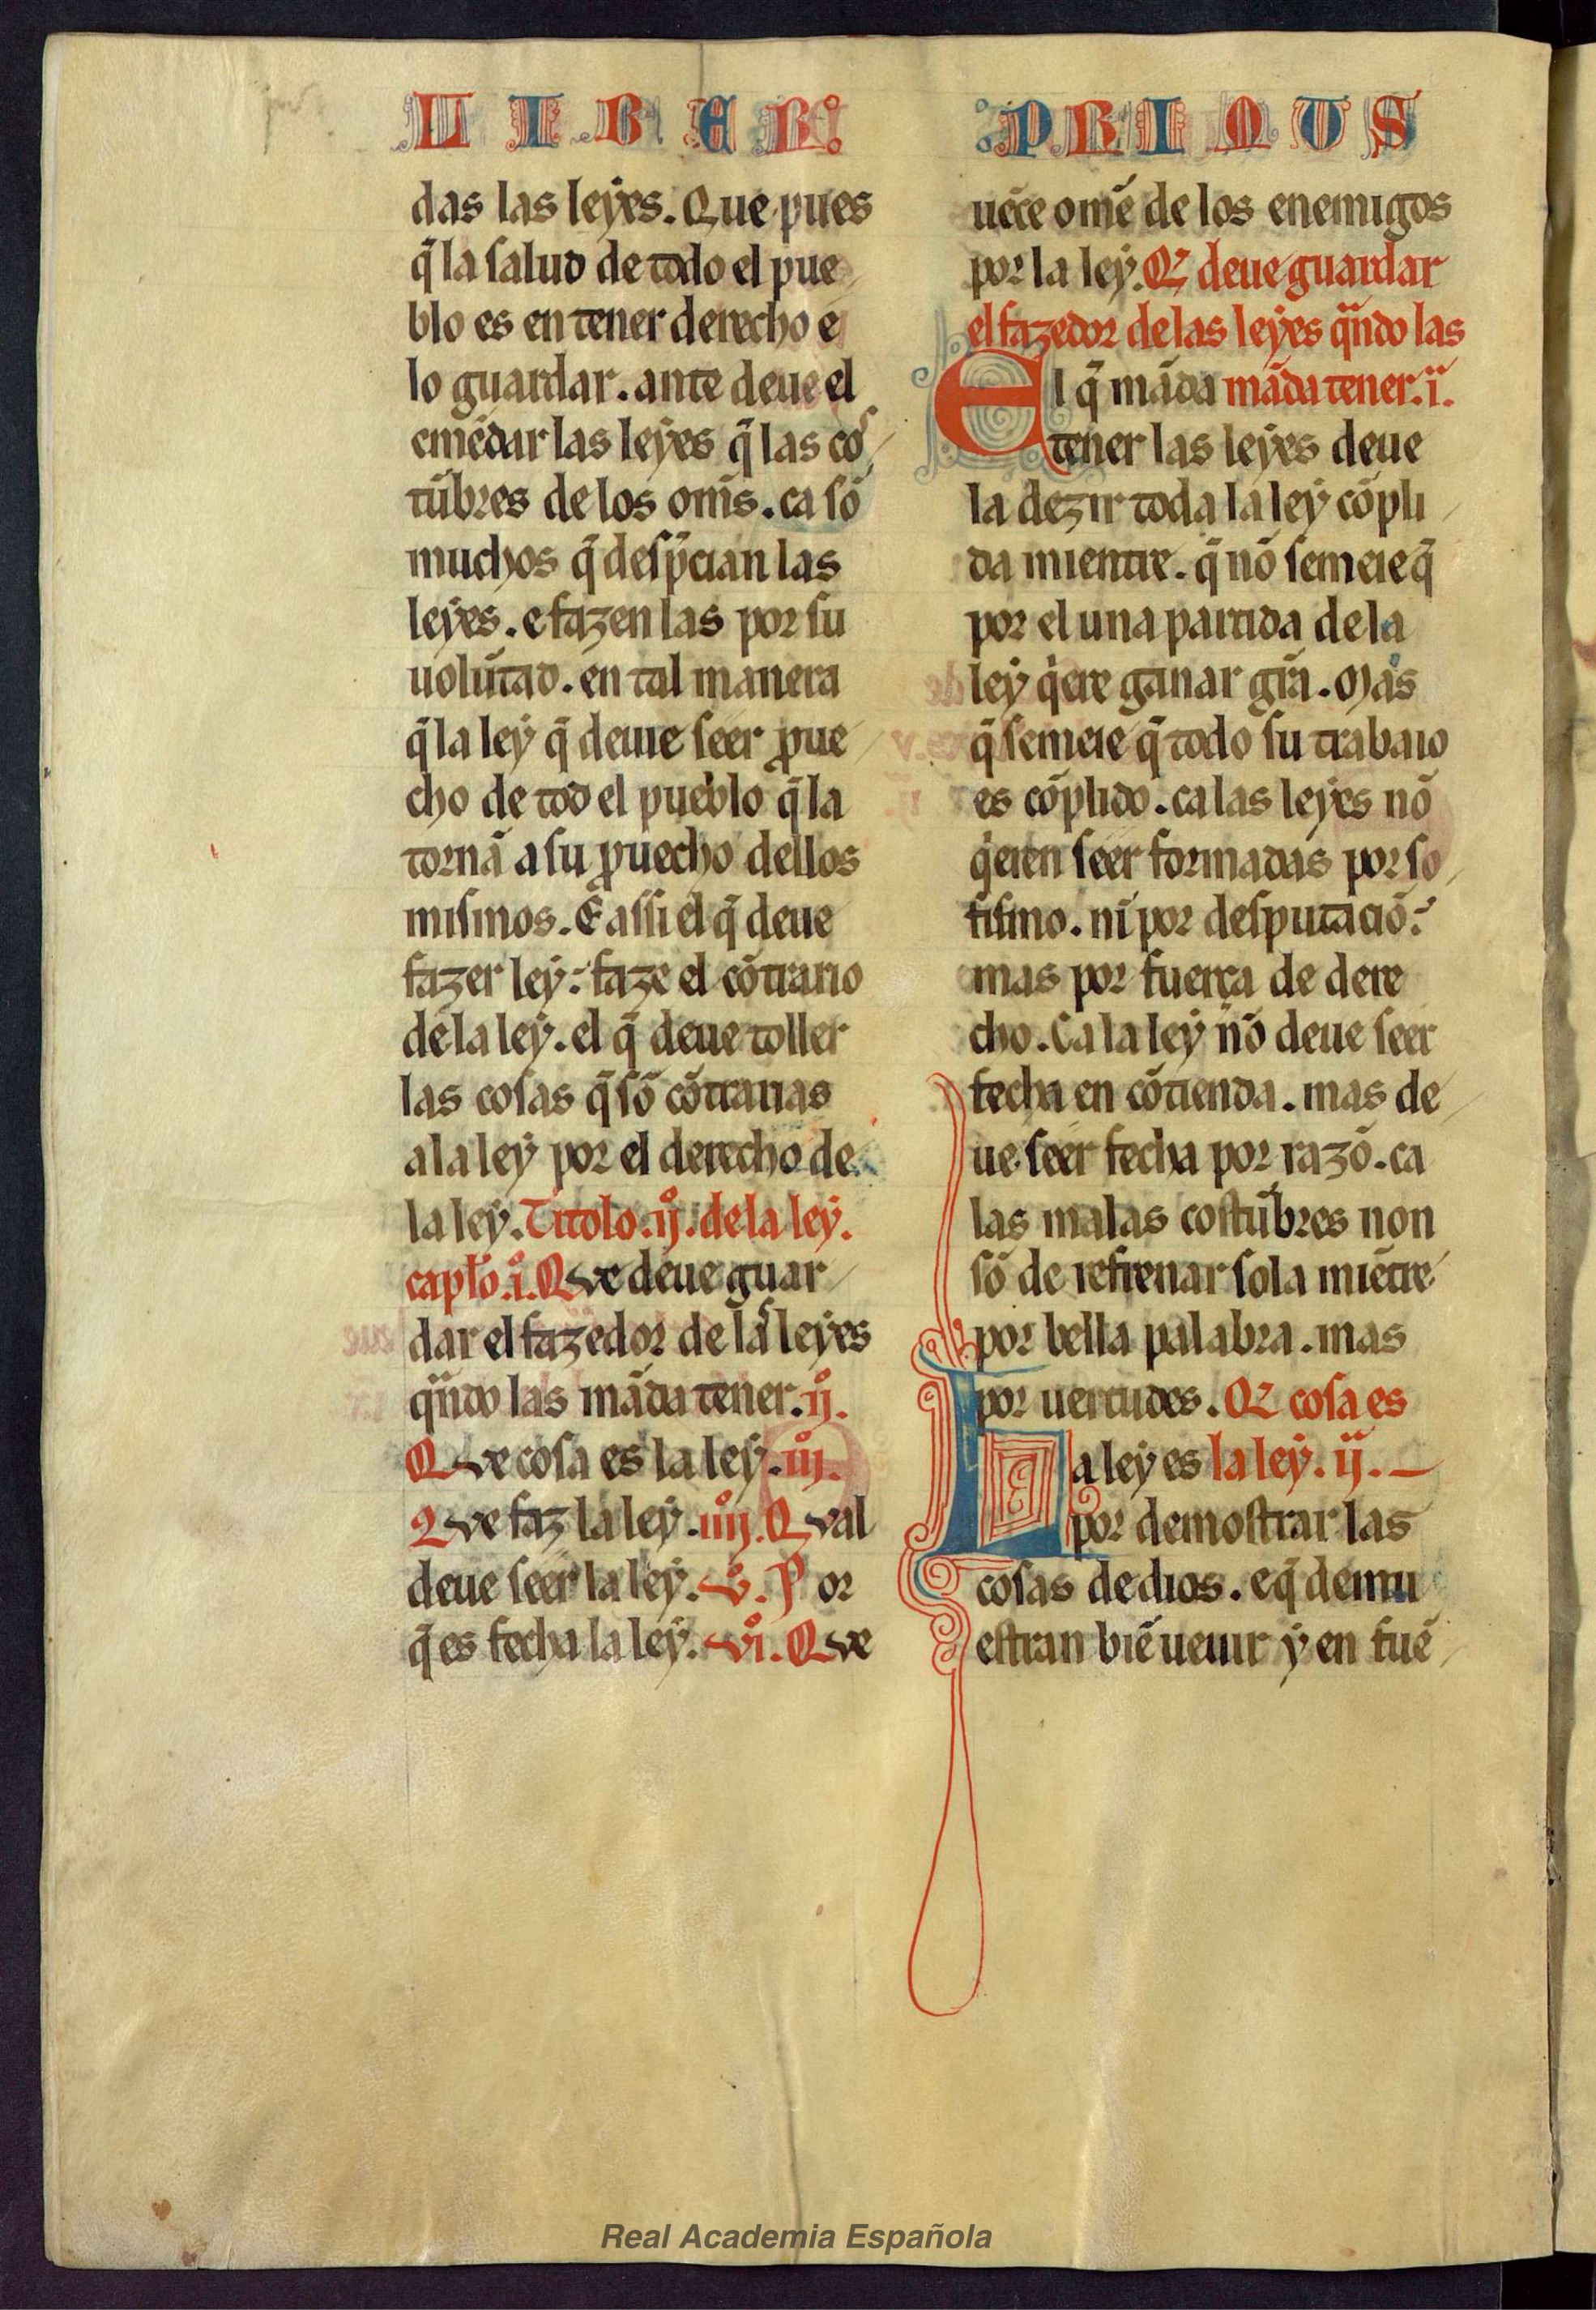 LIBER PRIMUS
das las leyes. Que pues
q̃ la salud de todo el pue
blo es en tener derecho e
lo guardar. ante deue el
emẽdar las leyes q̃ las cos
tũbres de los om̃s. ca sõ
muchos q̃ desp̃cian las
leyes. e fazen las por su
uolũtad. en tal manera
q̃ la ley q̃ deuie seer ꝓue
cho de tod el pueblo q̃ la
tornã a su ꝓuecho dellos
mismos. E assi el q̃ deue
fazer ley: faze el cõtrario
de la ley. el q̃ deue toller
las cosas q̃ sõ cõtrarias
a la ley por el derecho de
la ley. Titolo .ijº. de la ley.
capłº .iº. Que deue guar
dar el fazedor de las leyes
qũdo las mãda tener. ijº.
Que cosa es la ley. iijº.
Que faz la ley. iiijº. Qual
deue seer la ley. vº. Por
q̃ es fecha la ley. viº. Que
uẽce omẽ de los enemigos
por la ley. Q̃ deue guardar
el fazedor de las leyes qũdo las
El q̃ mãda mãda tener. i.
tener las leyes deue
la dezir toda la ley cõpli
da mientre. q̃ nõ semeie q̃
por el una partida de la
ley qͥere ganar grã. Mas
q̃ semeie q̃ todo su trabaio
es cõplido. ca las leyes nõ
qͥeren seer formadas por so
fismo. nĩ por desputaciõ:
mas por fuerça de dere
cho. Ca la ley nõ deue seer
fecha en cõtienda. mas de
ue seer fecha por razõ. ca
las malas costũbres non
sõ de refrenar sola miẽtre
por bella palabra. mas
por uertudes. Q̃ cosa es
La ley es la ley. ij.
por demostrar las
cosas de dios. e q̃ demu
estran biẽ ueuir y en fuẽ
Real Academia Española